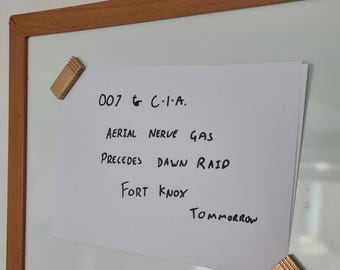 007 to C.I.A.
AERIAL NERVE GAS
PRECEDES DAWN RAID
FORT KNOX
TOMMORROW